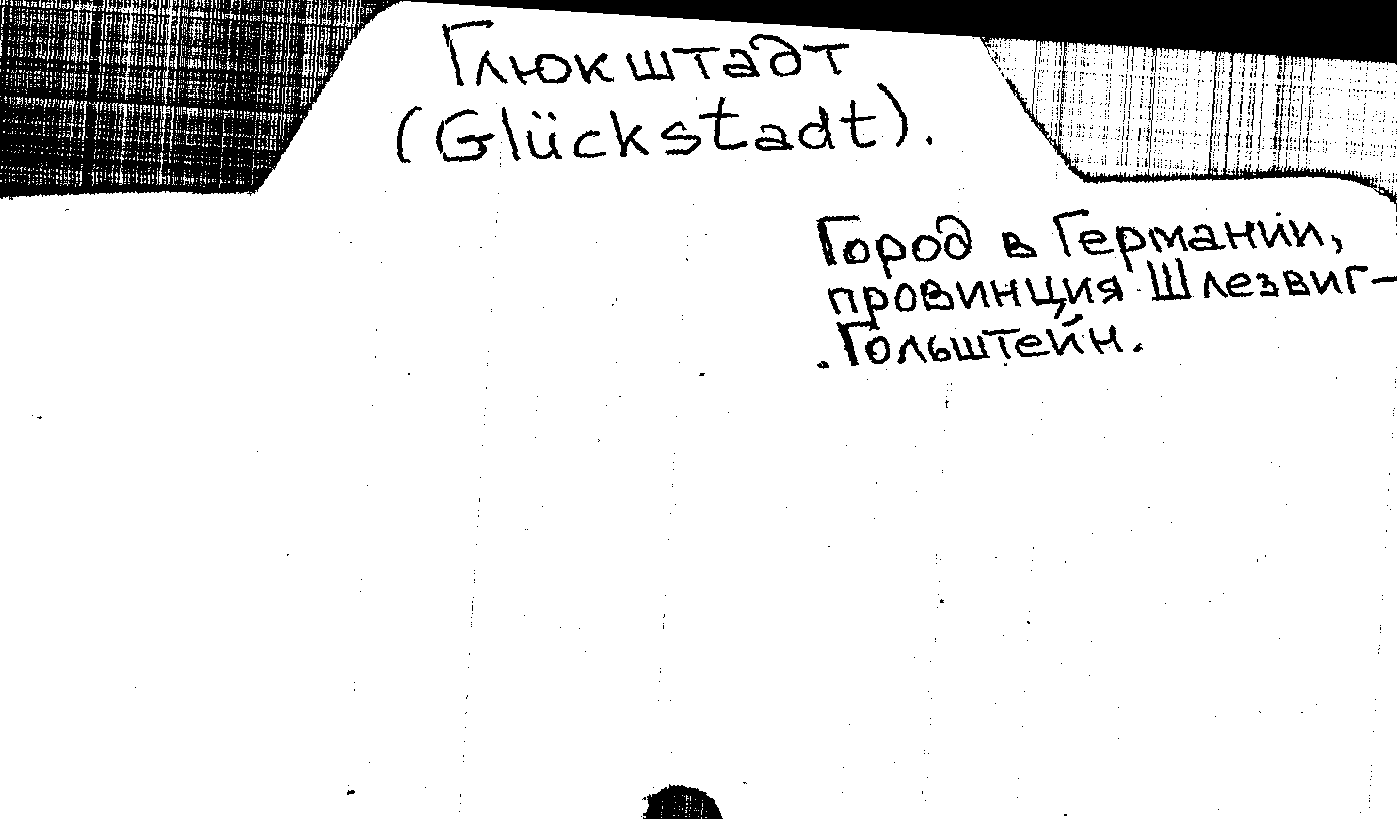 Глюкштадт
(Glückstadt).
Город в Германии,
провинция Шлезвиг-
Гольштейн.